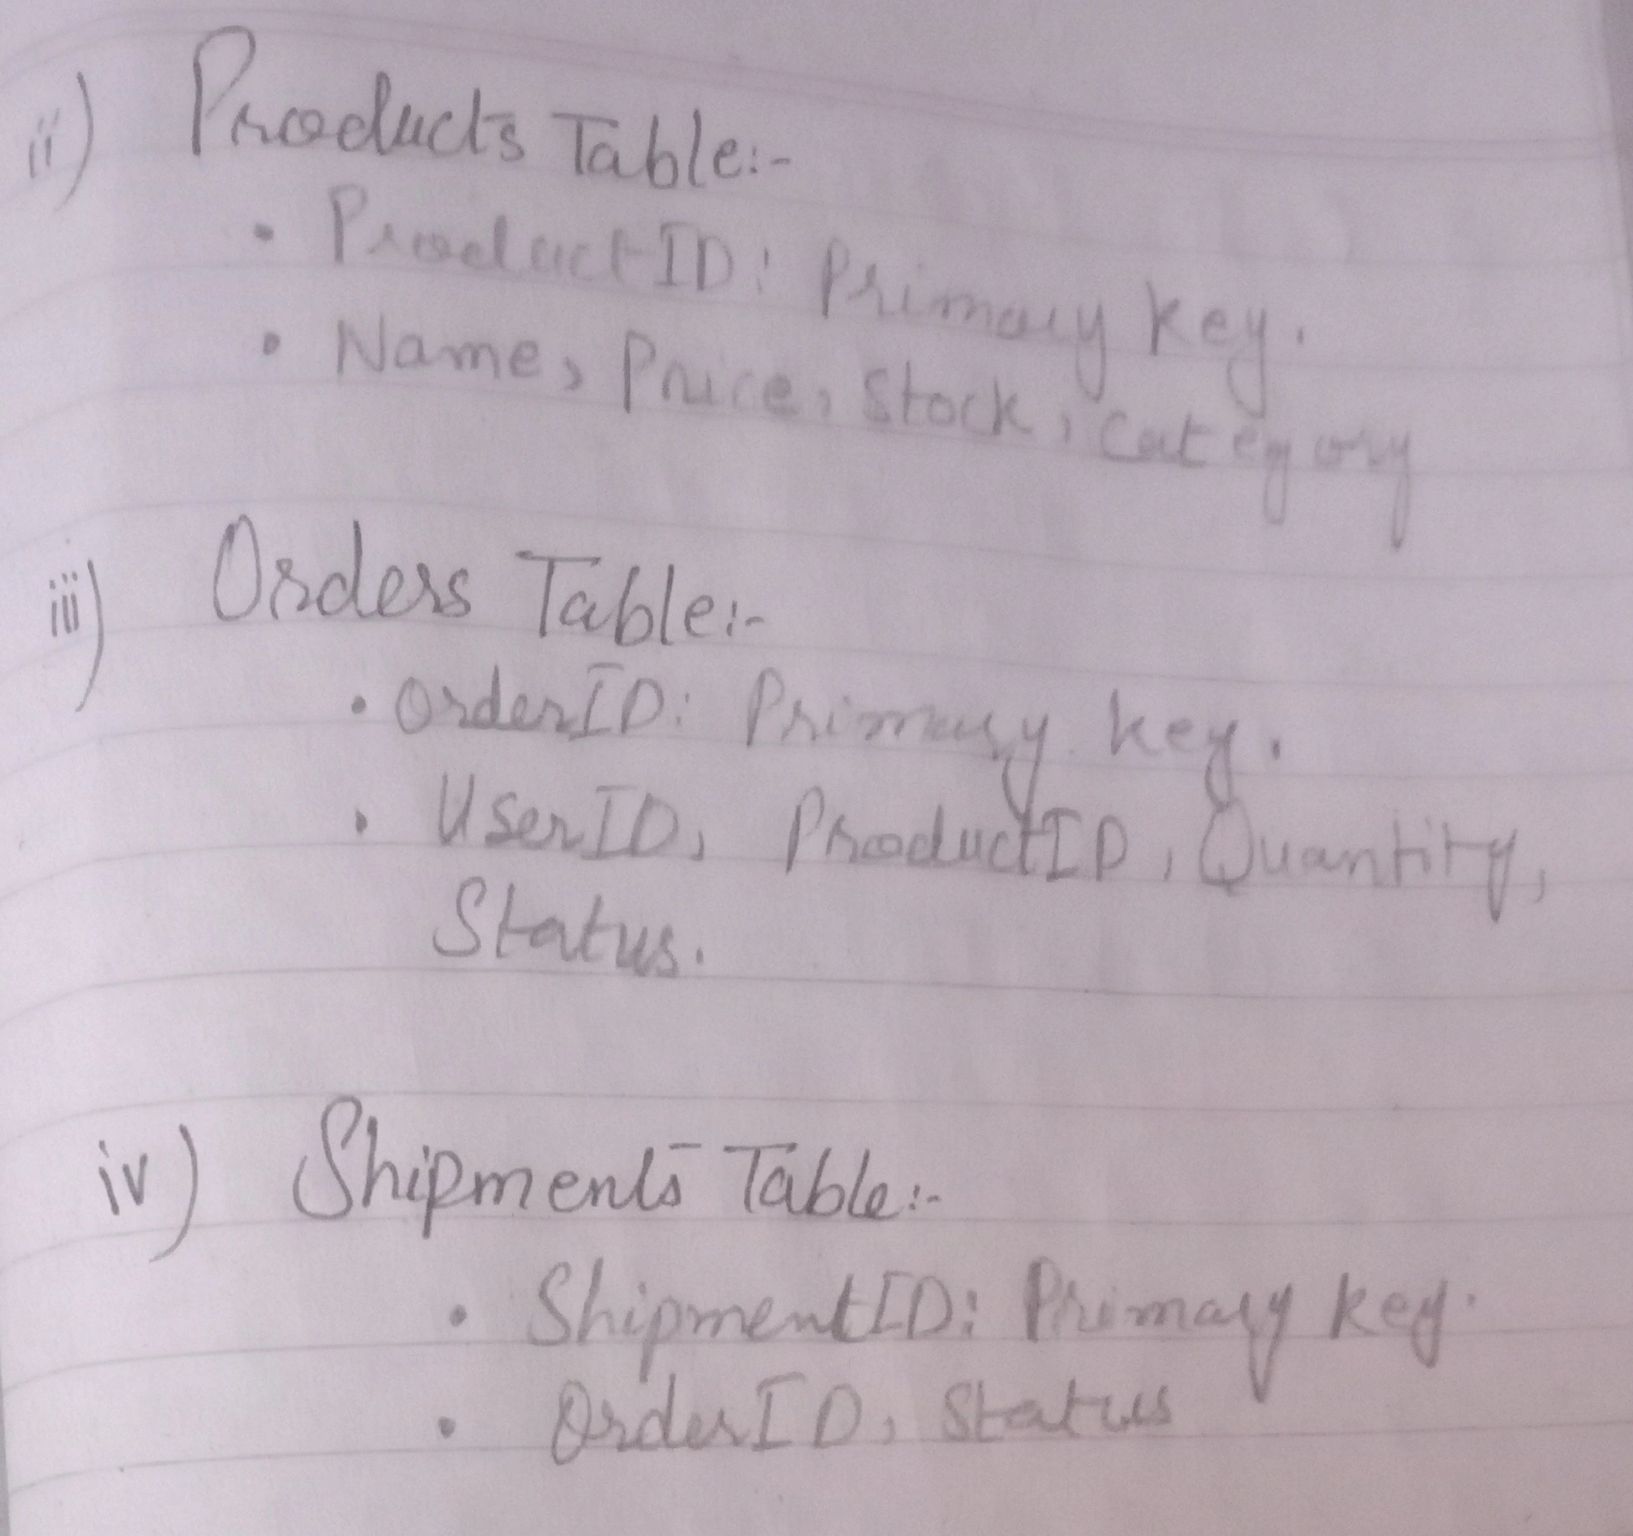 ii) Products Table:-
• ProductID: Primary key.
• Name, Price, Stock, Category
iii) Orders Table:-
• OrderID: Primary key.
• UserID, ProductID, Quantity,
Status.
iv) Shipments Table:-
• ShipmentID: Primary key.
• OrderID, Status